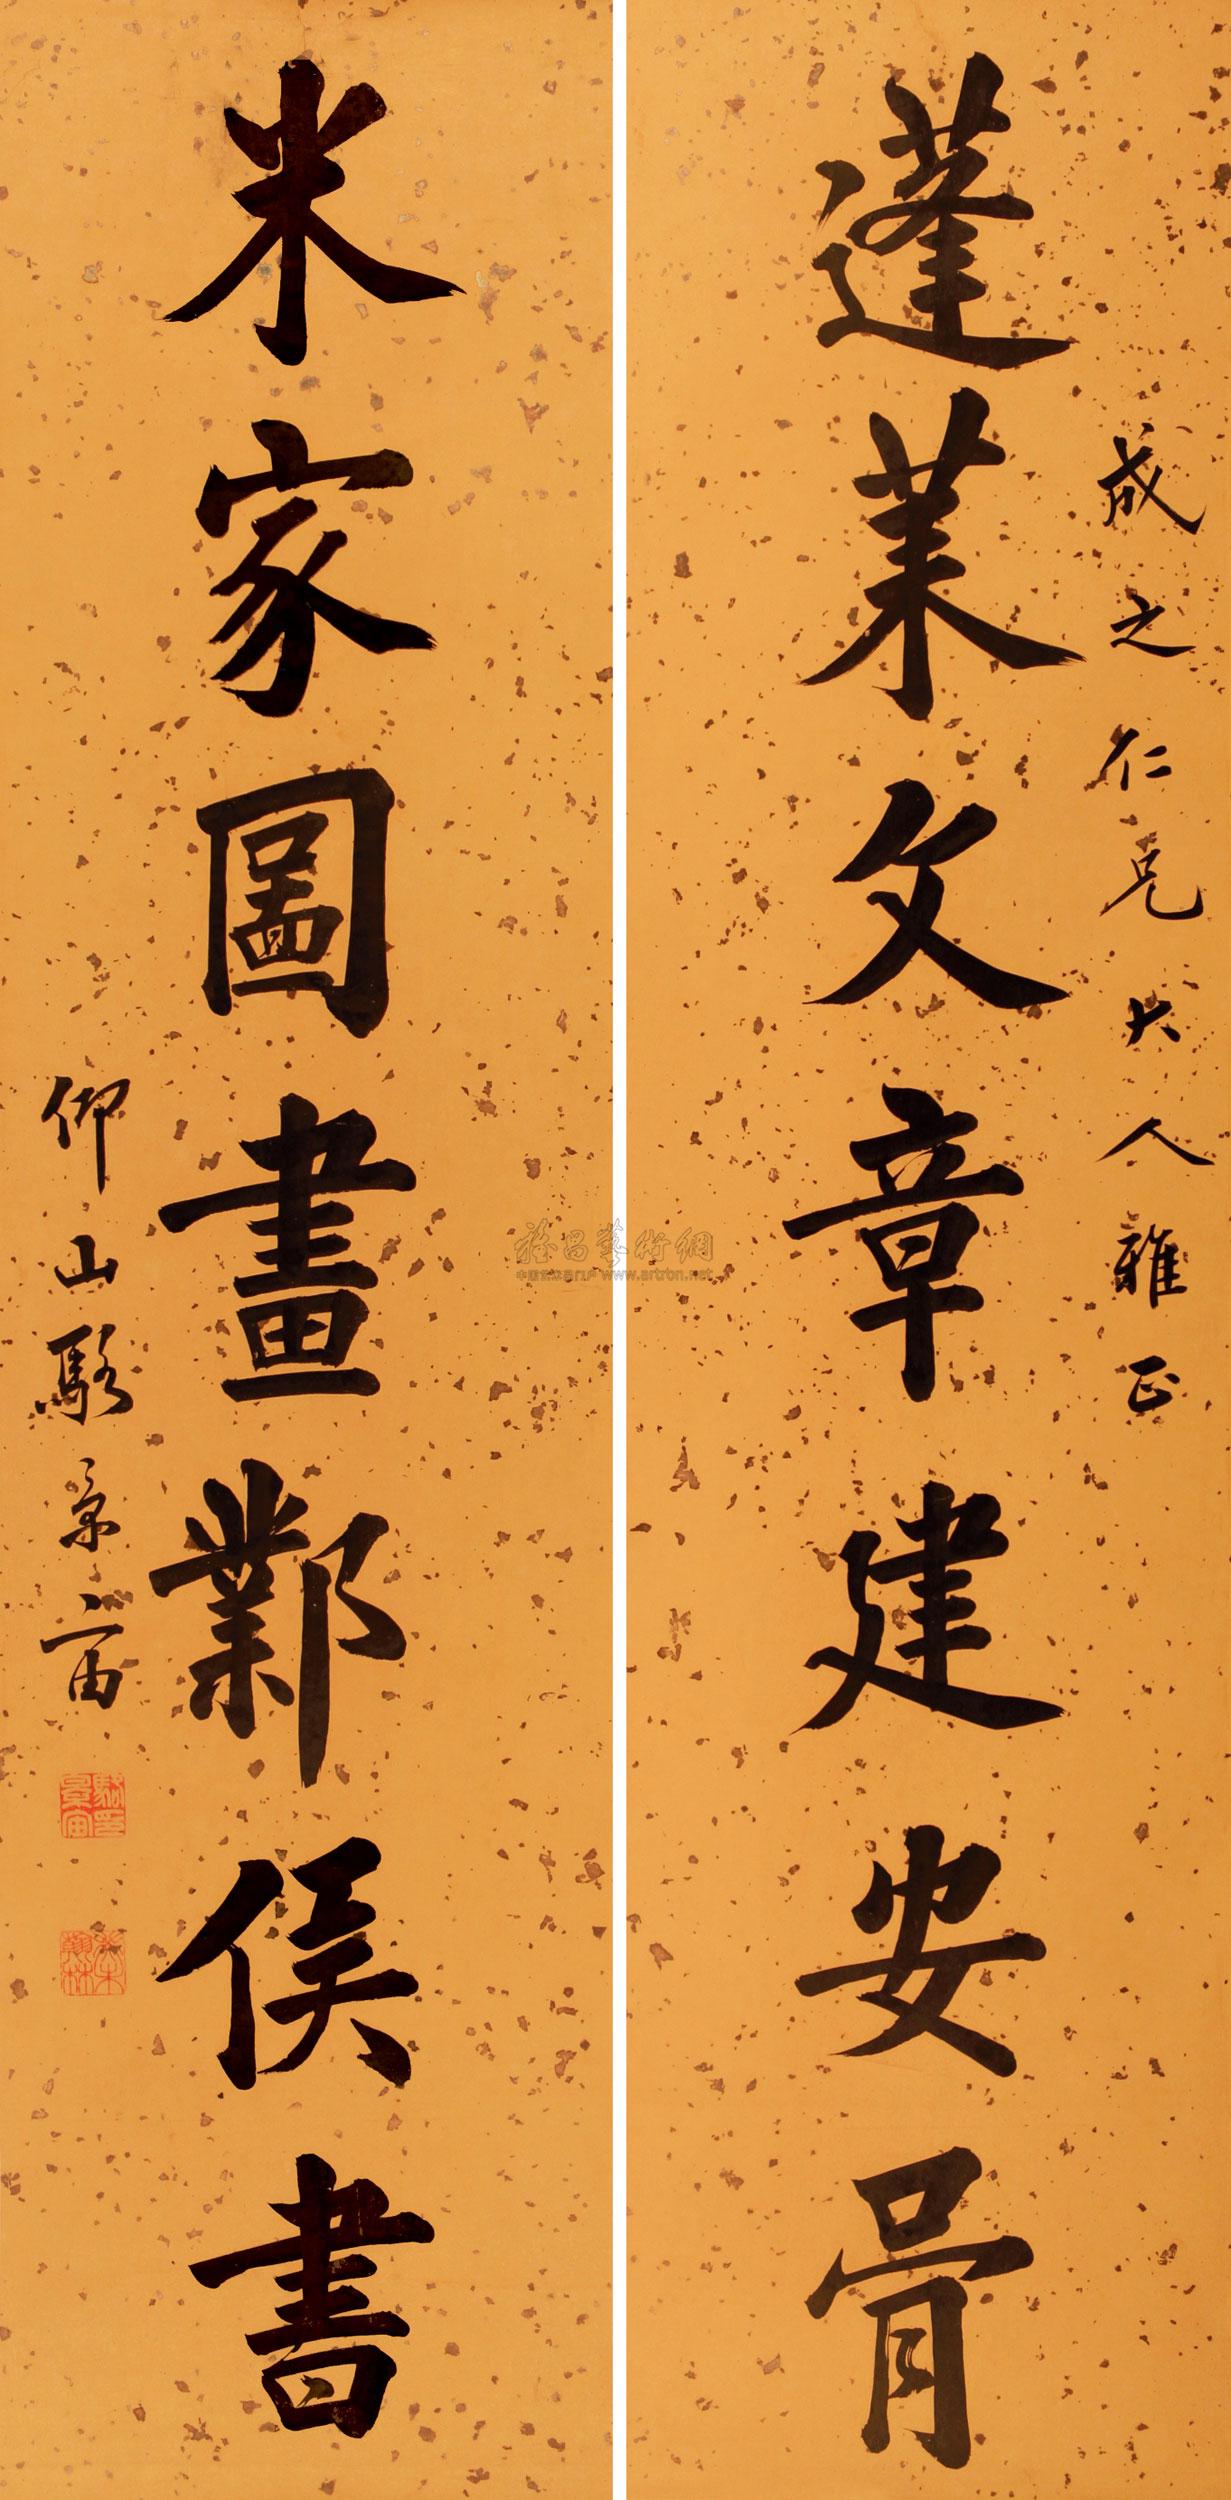 成之仁兄大人雅正
蓬萊文章建安骨
米家圖畫鄴侯書
仰山駱景宙
雅昌藝術網
www.artron.net